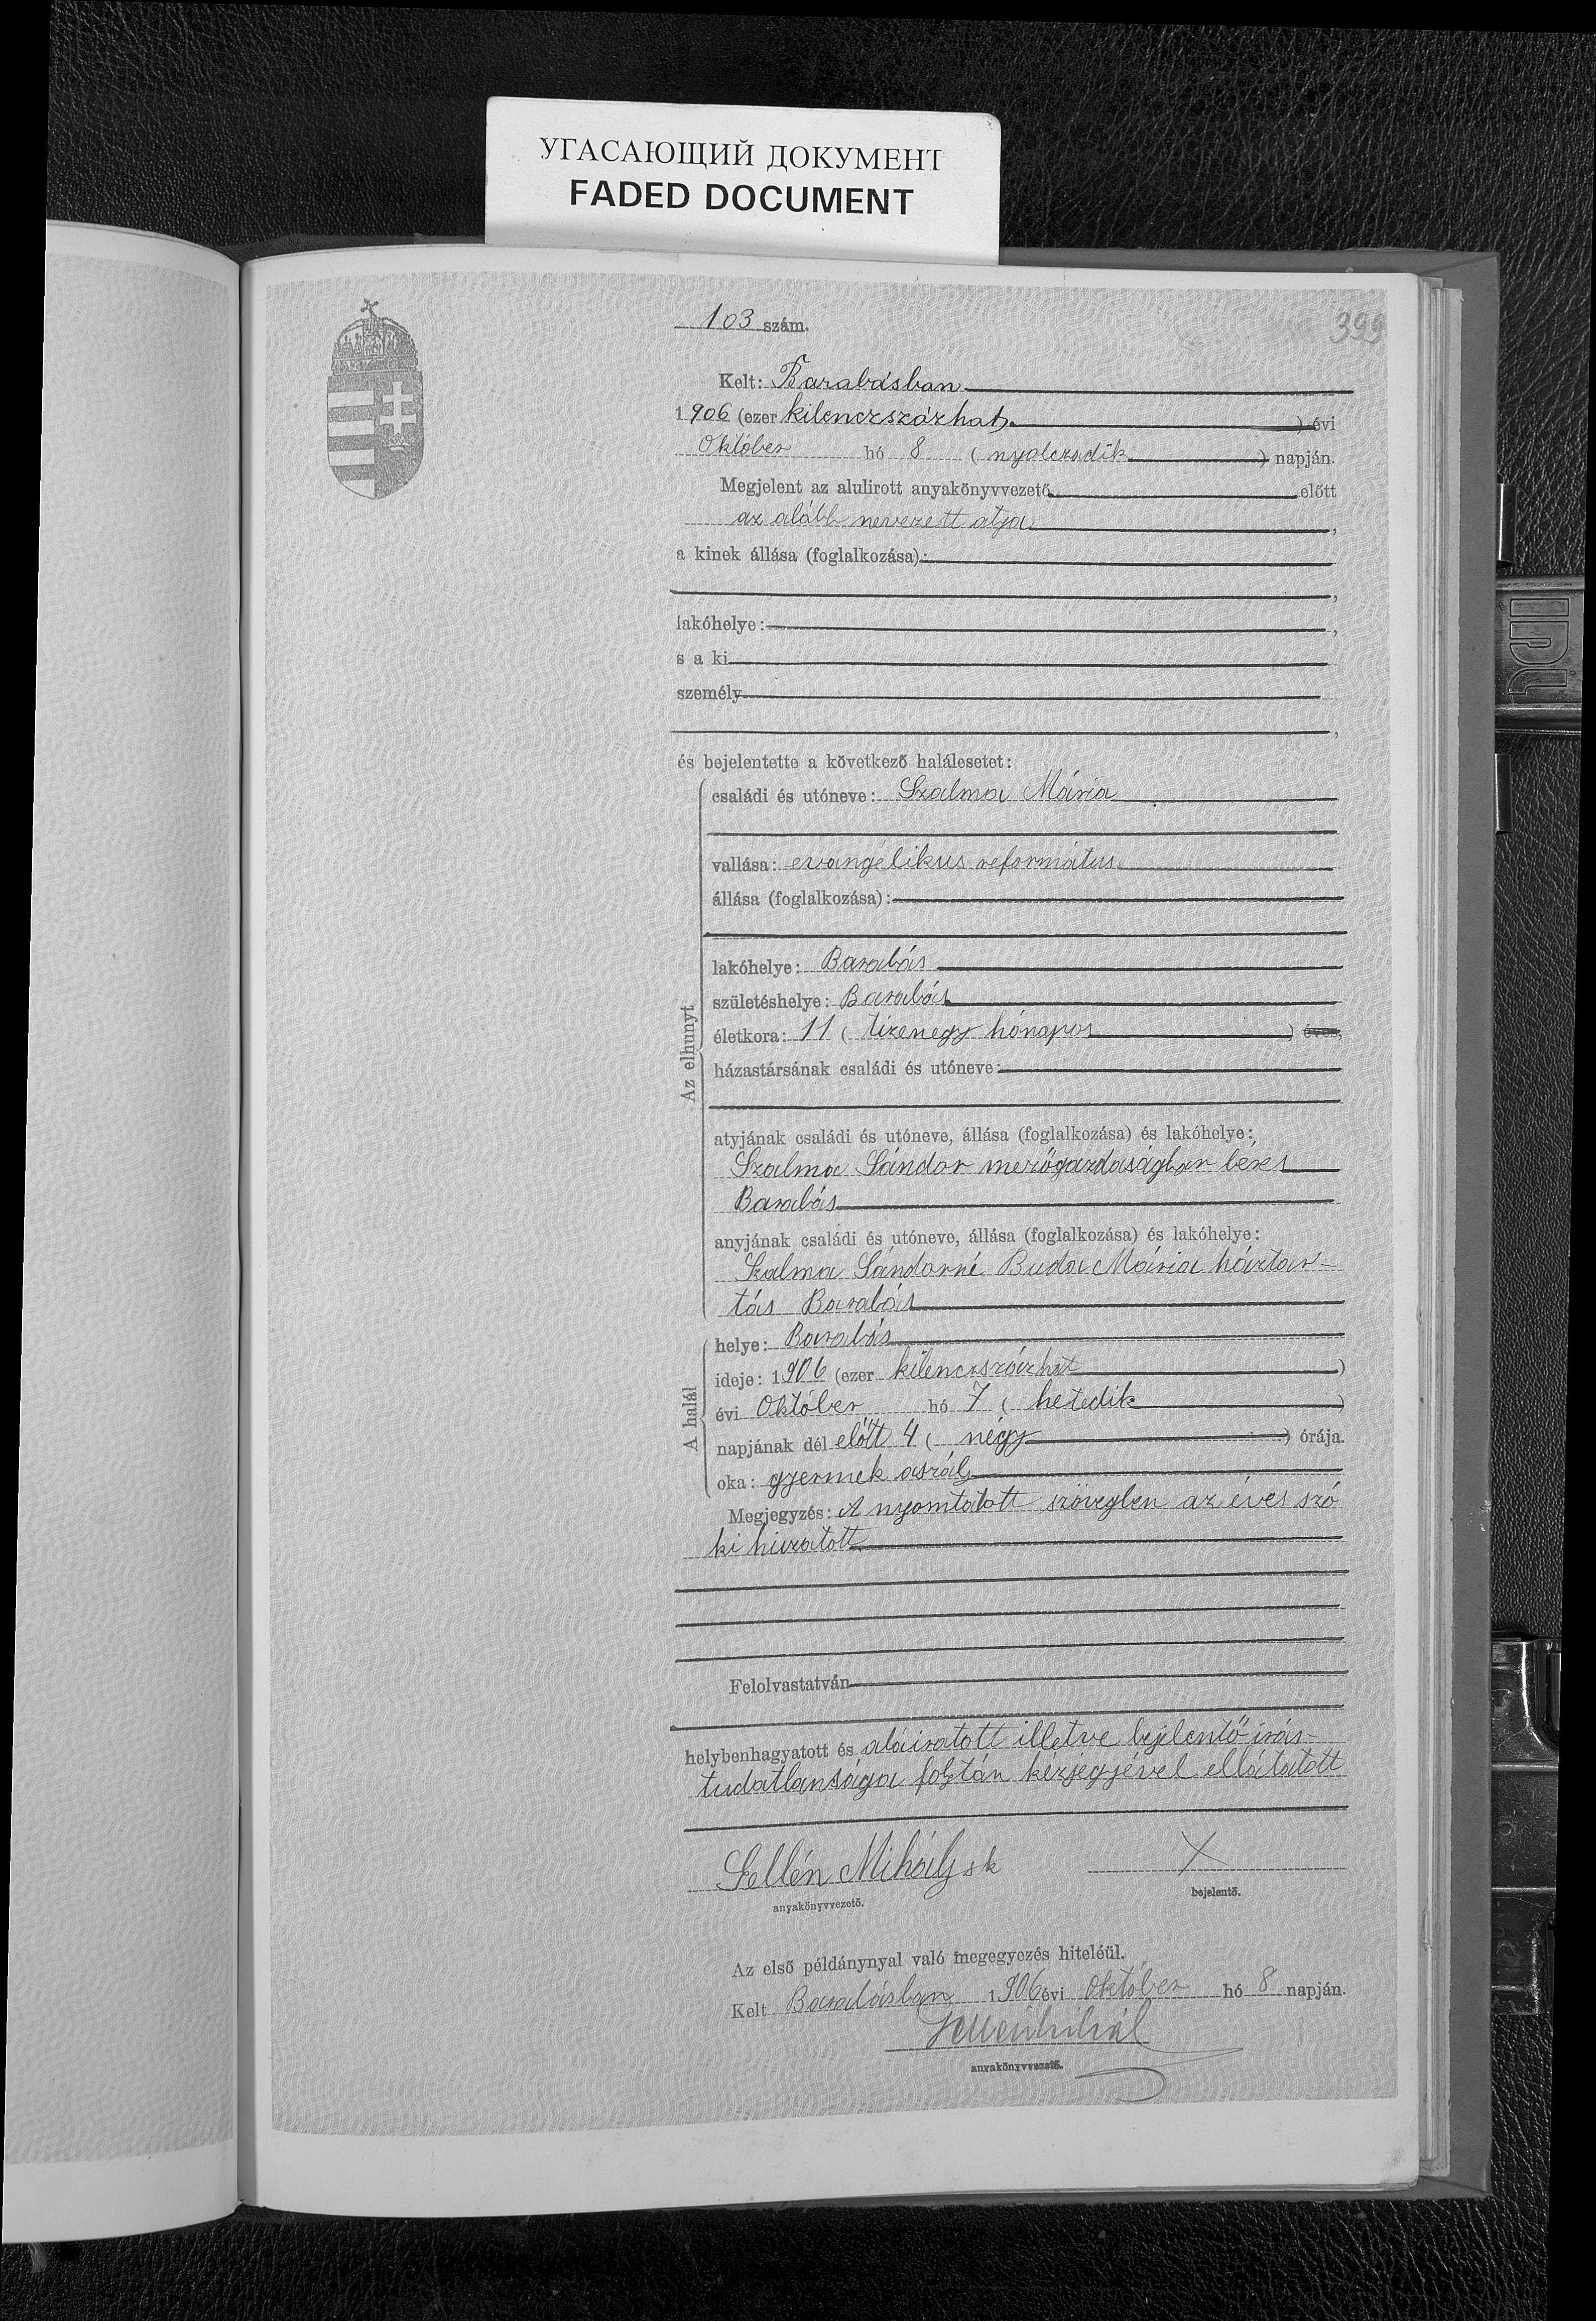 УГАСАЮЩИЙ ДОКУМЕНТ
FADED DOCUMENT
103 szám.
399
Kelt: Barabásban
1906 (ezer kilenczszázhat) évi
Október hó 8 (nyolczadik) napján.
Megjelent az alulirott anyakönyvvezető előtt
az alább nevezett atja,
a kinek állása (foglalkozása):
,
lakóhelye: ,
s a ki
személy
,
és bejelentette a következő halálesetet:
Az elhunyt
családi és utóneve: Szalma Mária
vallása: evangélikus református
állása (foglalkozása):
lakóhelye: Barabás
születéshelye: Barabás
életkora: 11 (tizenegy hónapos) éves,
házastársának családi és utóneve:
atyjának családi és utóneve, állása (foglalkozása) és lakóhelye:
Szalma Sándor mezőgazdaságban béres
Barabás
anyjának családi és utóneve, állása (foglalkozása) és lakóhelye:
Szalma Sándorné Buda Mária háztar-
tás Barabás
A halál
helye: Barabás
ideje: 1906 (ezer kilenczszázhat)
évi Október hó 7 (hetedik)
napjának dél előtt 4 (négy) órája.
oka: gyermek aszály
Megjegyzés: A nyomtatott szövegben az éves szó
ki huzatott
Felolvastatván
helybenhagyatott és aláiratott illetve bejelentő irás-
tudatlansága folytán kézjegyével ellátatott
Sellén Mihály sk
X
anyakönyvvezető.
bejelentő.
Az első példánynyal való megegyezés hiteléül.
Kelt Barabásban 1906 évi Október hó 8 napján.
anyakönyvvezető.